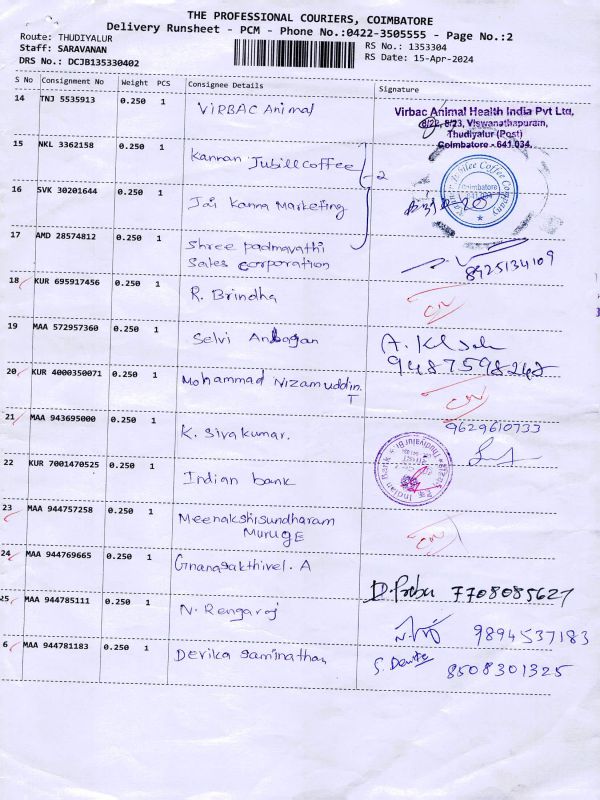 THE PROFESSIONAL COURIERS, COIMBATORE
Delivery Runsheet - PCM - Phone No.:0422-3505555 - Page No.:2
Route: THUDIYALUR
RS No.: 1353304
Staff: SARAVANAN
RS Date: 15-Apr-2024
DRS No.: DCJB135330402
S No Consignment No Weight PCS Consignee Details Signature
14 TNJ 5535913 0.250 1 VIRBAC Animal
Virbac Animal Health India Pvt Ltd,
8/22, 8/23, Viswanathapuram,
Thudiyalur (Post)
Coimbatore - 641 034.
15 NKL 3362158 0.250 1 Kannan Jubill Coffee 2
Jubilee Coffee Company
Coimbatore
16 SVK 30201644 0.250 1 Jai Kanna Marketing
17 AMD 28574812 0.250 1 Shree Padmavathi
Sales Corporation
8925134109
18 KUR 695917456 0.250 1 R. Brindha CN
19 MAA 572957360 0.250 1 Selvi Anbagan
9487598248
20 KUR 4000350071 0.250 1 Mohammad Nizamuddin.
T
CN
21 MAA 943695000 0.250 1 K. Sivakumar.
9629610733
22 KUR 7001470525 0.250 1 Indian bank
Indian Bank
23 MAA 944757258 0.250 1 Meenakshisundharam
MURUGE
CN
24 MAA 944769665 0.250 1 Gnanasakthivel. A
D. Prabu 7708085627
25 MAA 944785111 0.250 1 N. Rengaraj
9894537183
6 MAA 944781183 0.250 1 Devika Saminathan
8508301325